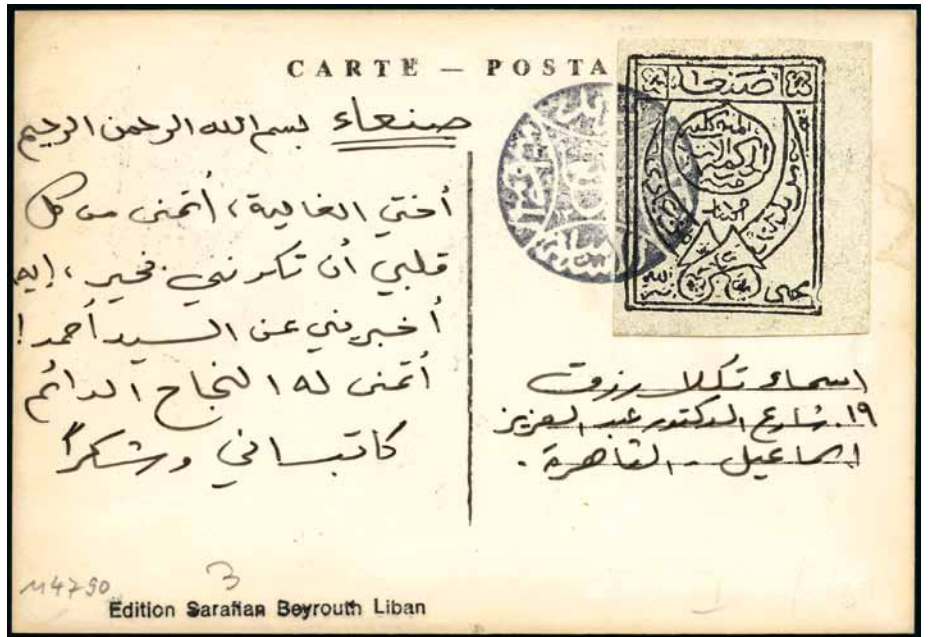 CARTE — POSTA
صنعاء بسم الله الرحمن الرحيم
أختي الغالية، أتمنى من كل
قلبي أن تكونني بخير، إيه
أخبريني عن السيد أحمد!
أتمنى له النجاح الدائم
كاتبساني وشكراً
صنعا
المتوكلية
اسماء تكلا رزق
١٩ شارع الدكتور عبد العزيز
اسماعيل - القاهرة.
114790
3
Edition Sarafian Beyrouth Liban